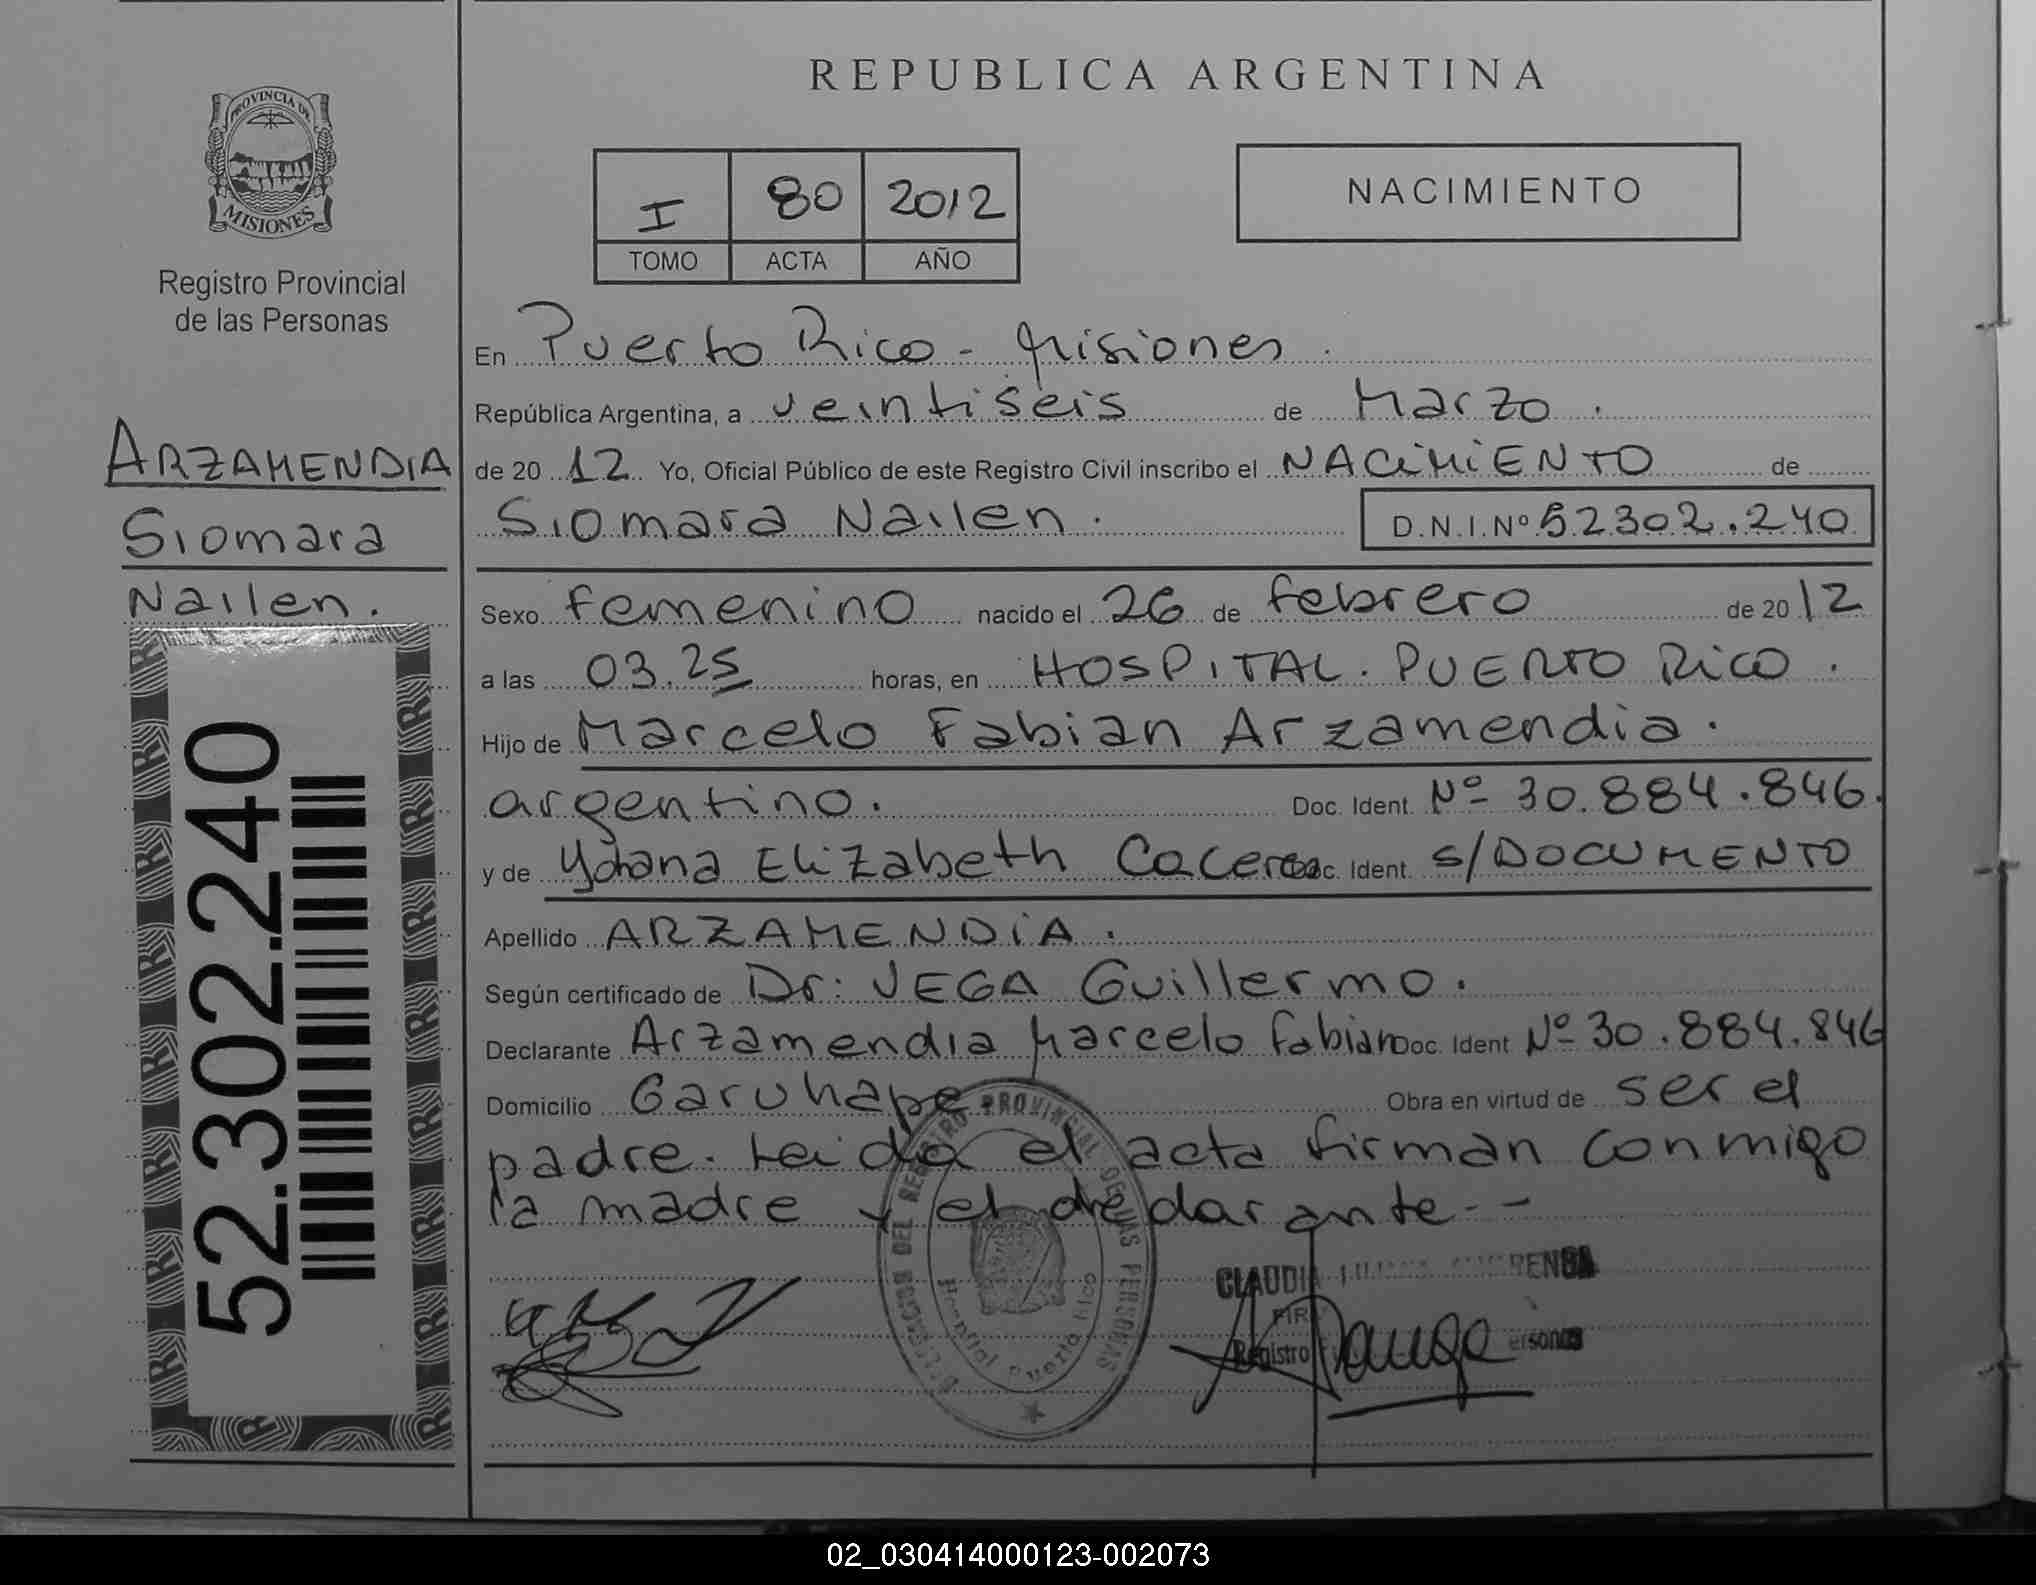 REPUBLICA ARGENTINA
PROVINCIA DE
MISIONES
Registro Provincial
de las Personas
I 80 2012
TOMO ACTA AÑO
NACIMIENTO
En Puerto Rico - Misiones.
República Argentina, a veintiseis de Marzo.
ARZAMENDIA
de 20 12 Yo, Oficial Público de este Registro Civil inscribo el NACIMIENTO de
Siomara
Siomara Nailen. D.N.I.Nº 52302.240
Nailen.
Sexo femenino nacido el 26 de febrero de 2012
a las 03.25 horas, en HOSPITAL. PUERTO RICO.
Hijo de Marcelo Fabian Arzamendia.
argentino. Doc. Ident. Nº 30.884.846.
y de Yohana Elizabeth Caceres Doc. Ident. S/DOCUMENTO
Apellido ARZAMENDIA.
Según certificado de Dr: VEGA Guillermo.
Declarante Arzamendia Marcelo Fabian Doc. Ident Nº 30.884.846
Domicilio Garuhape Obra en virtud de ser el
padre. Leida el acta firman conmigo
la madre y el declarante. -
52.302.240
DEL REGISTRO PROVINCIAL DE LAS PERSONAS
Hospital Puerto Rico
CLAUDIA
Registro
02_030414000123-002073